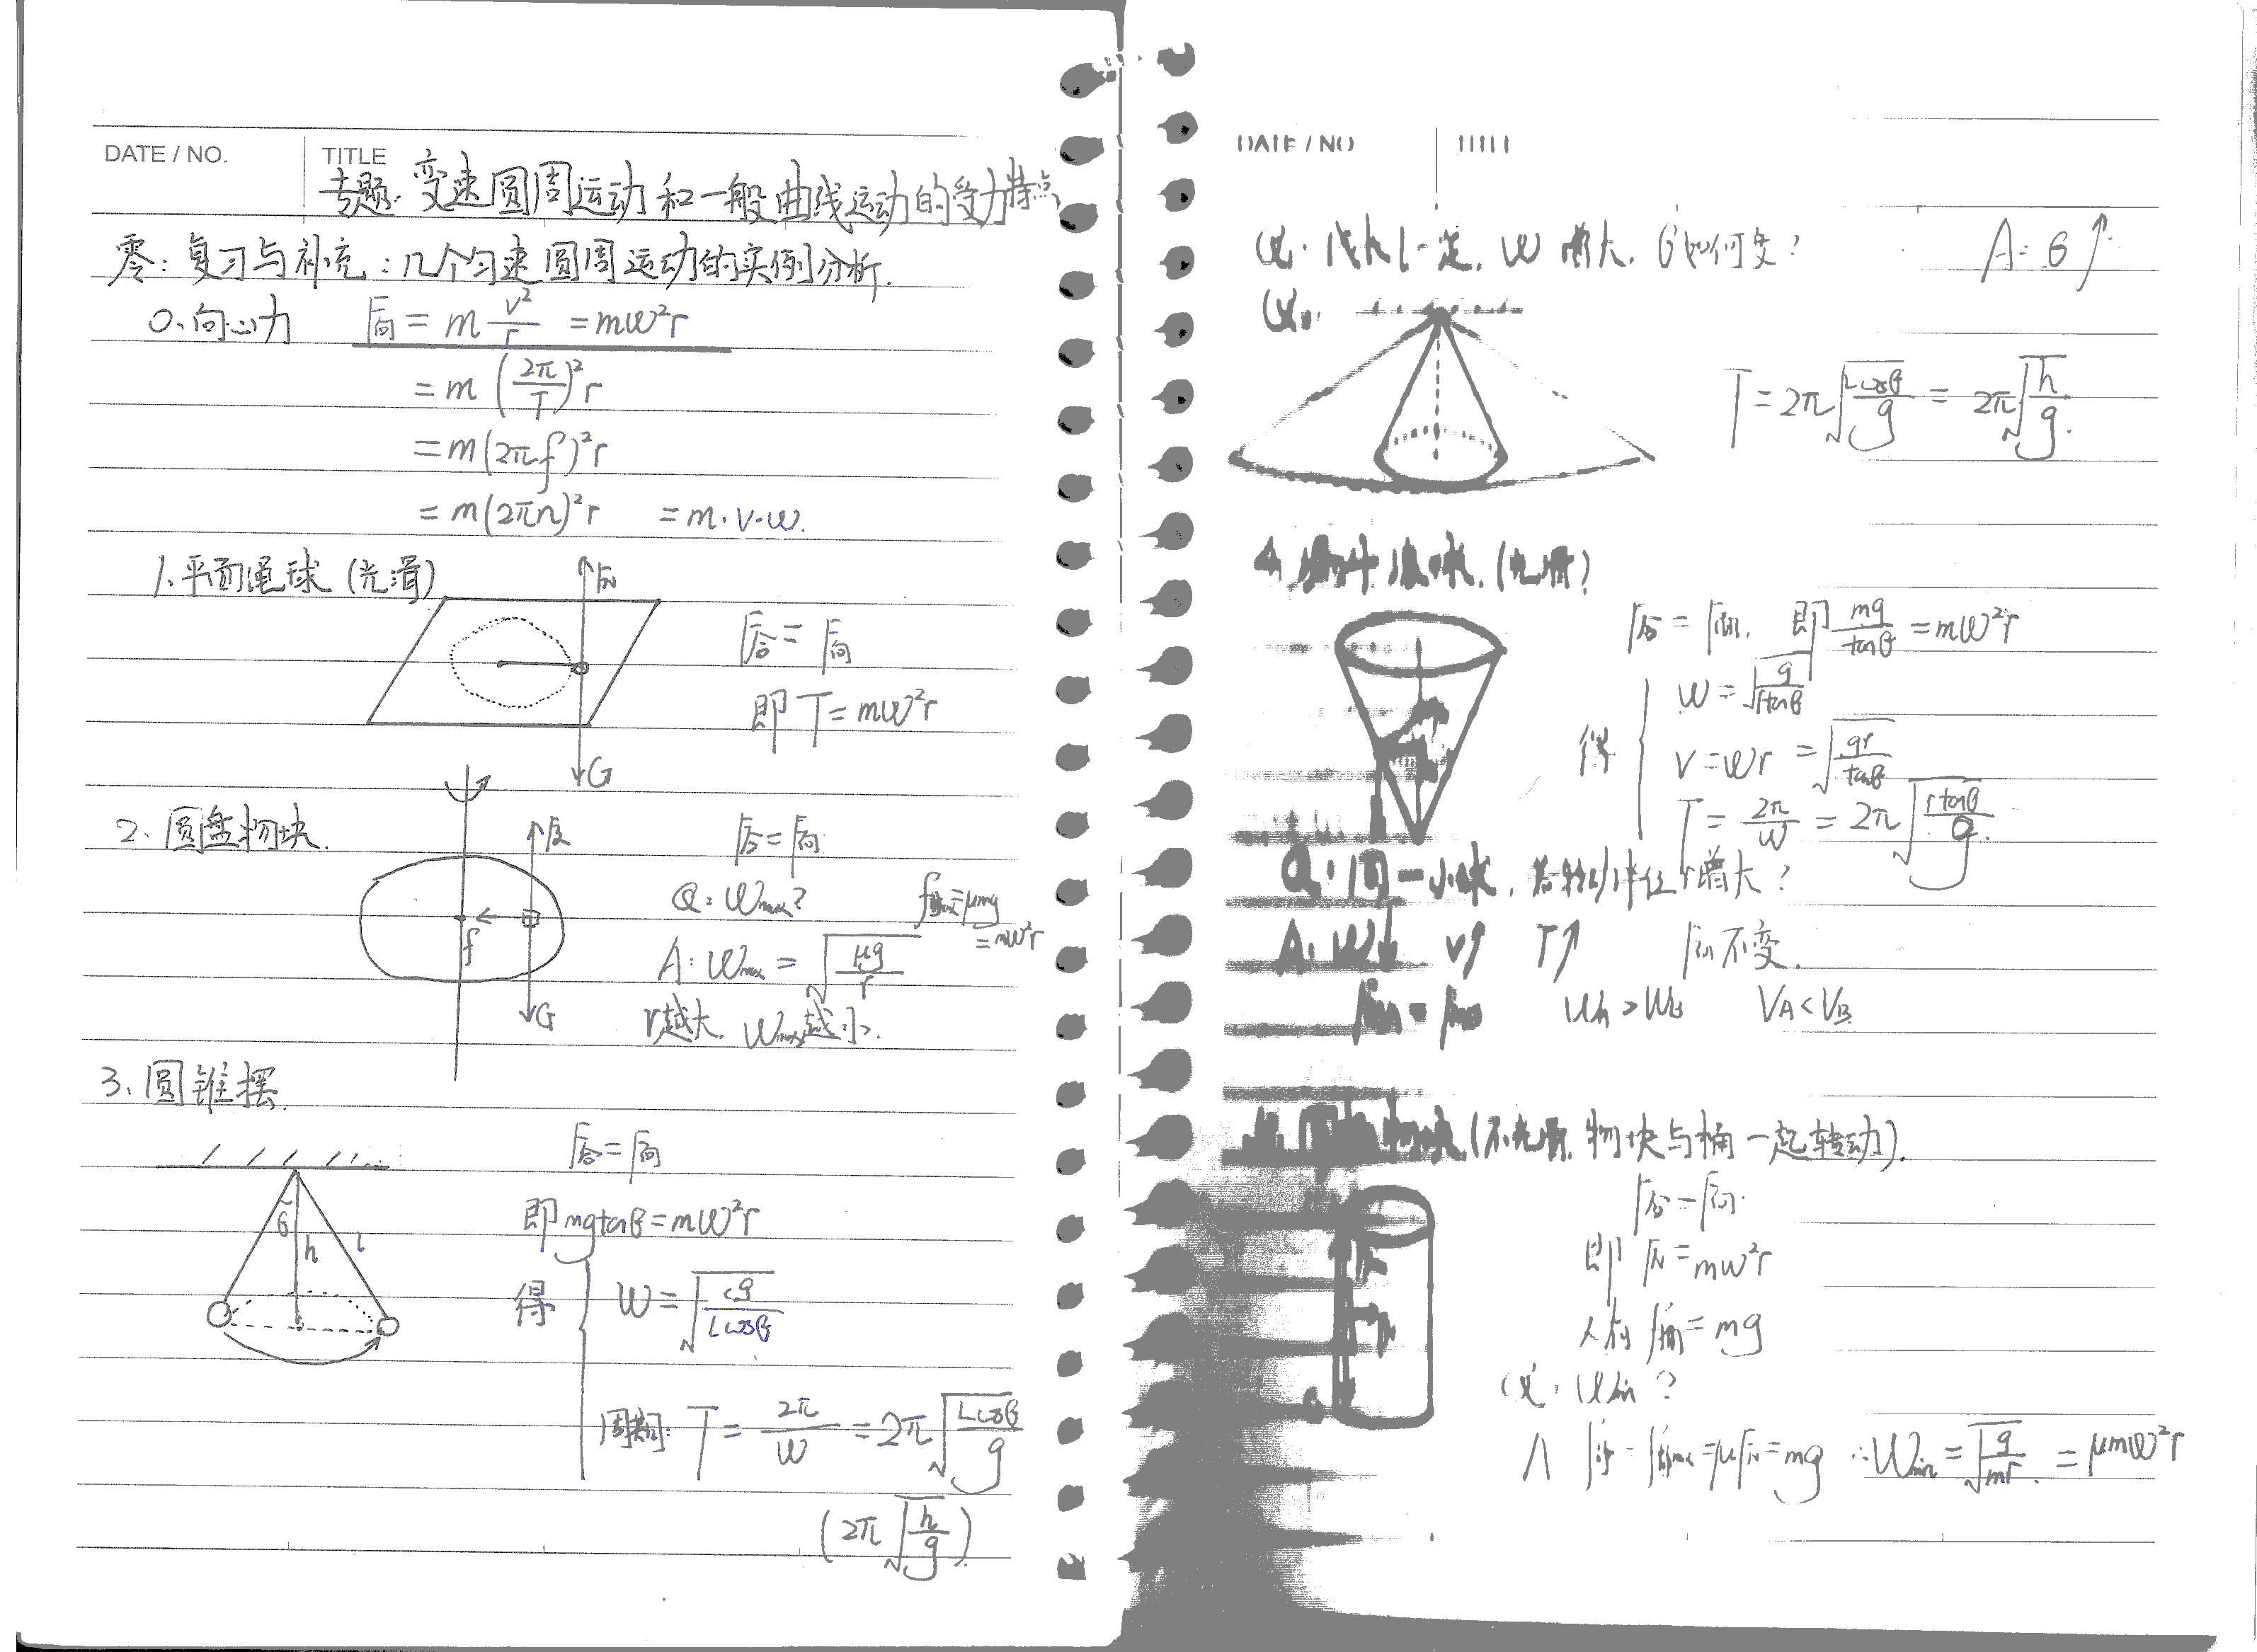 DATE / NO.
TITLE
专题. 变速圆周运动和一般曲线运动的受力特点
零: 复习与补充: 几个匀速圆周运动的实例分析.
0. 向心力 F向 = m v²/r = mω²r
= m (2π/T)² r
= m(2πf)² r
= m(2πn)² r = m·v·ω.
1. 平面绳球 (光滑)
FN
F合 = F向
即 T = mω²r
G
2. 圆盘物块.
F合 = F向
Q: ωmax?
= μmg
= mω²r
A: ωmax = √(μg/r)
f
G
r越大, ωmax越小.
3. 圆锥摆.
F合 = F向
即 mgtanθ = mω²r
θ
h
l
得 ω = √(g/Lcosθ)
周期: T = 2π/ω = 2π√(Lcosθ/g)
(2π√(h/g))
DATE / NO
一定, ω 增大, θ如何变?
A: θ↑
T = 2π√(Lcosθ/g) = 2π√(h/g).
F合 = F向, 即 mg/tanθ = mω²r
ω = √(g/rtanθ)
得 v = ωr = √(gr/tanθ)
T = 2π/ω = 2π√(rtanθ/g).
Q: 同一小球, 若转动半径r增大?
A: ω↓ v↑ T↑ F向不变.
ωA > ωB VA < VB
物块(不光滑, 物块与桶一起转动).
F合 = F向.
即 FN = mω²r
= mg
ωmin ?
= μFN = mg ∴ ωmin = √(g/mr). = μmω²r